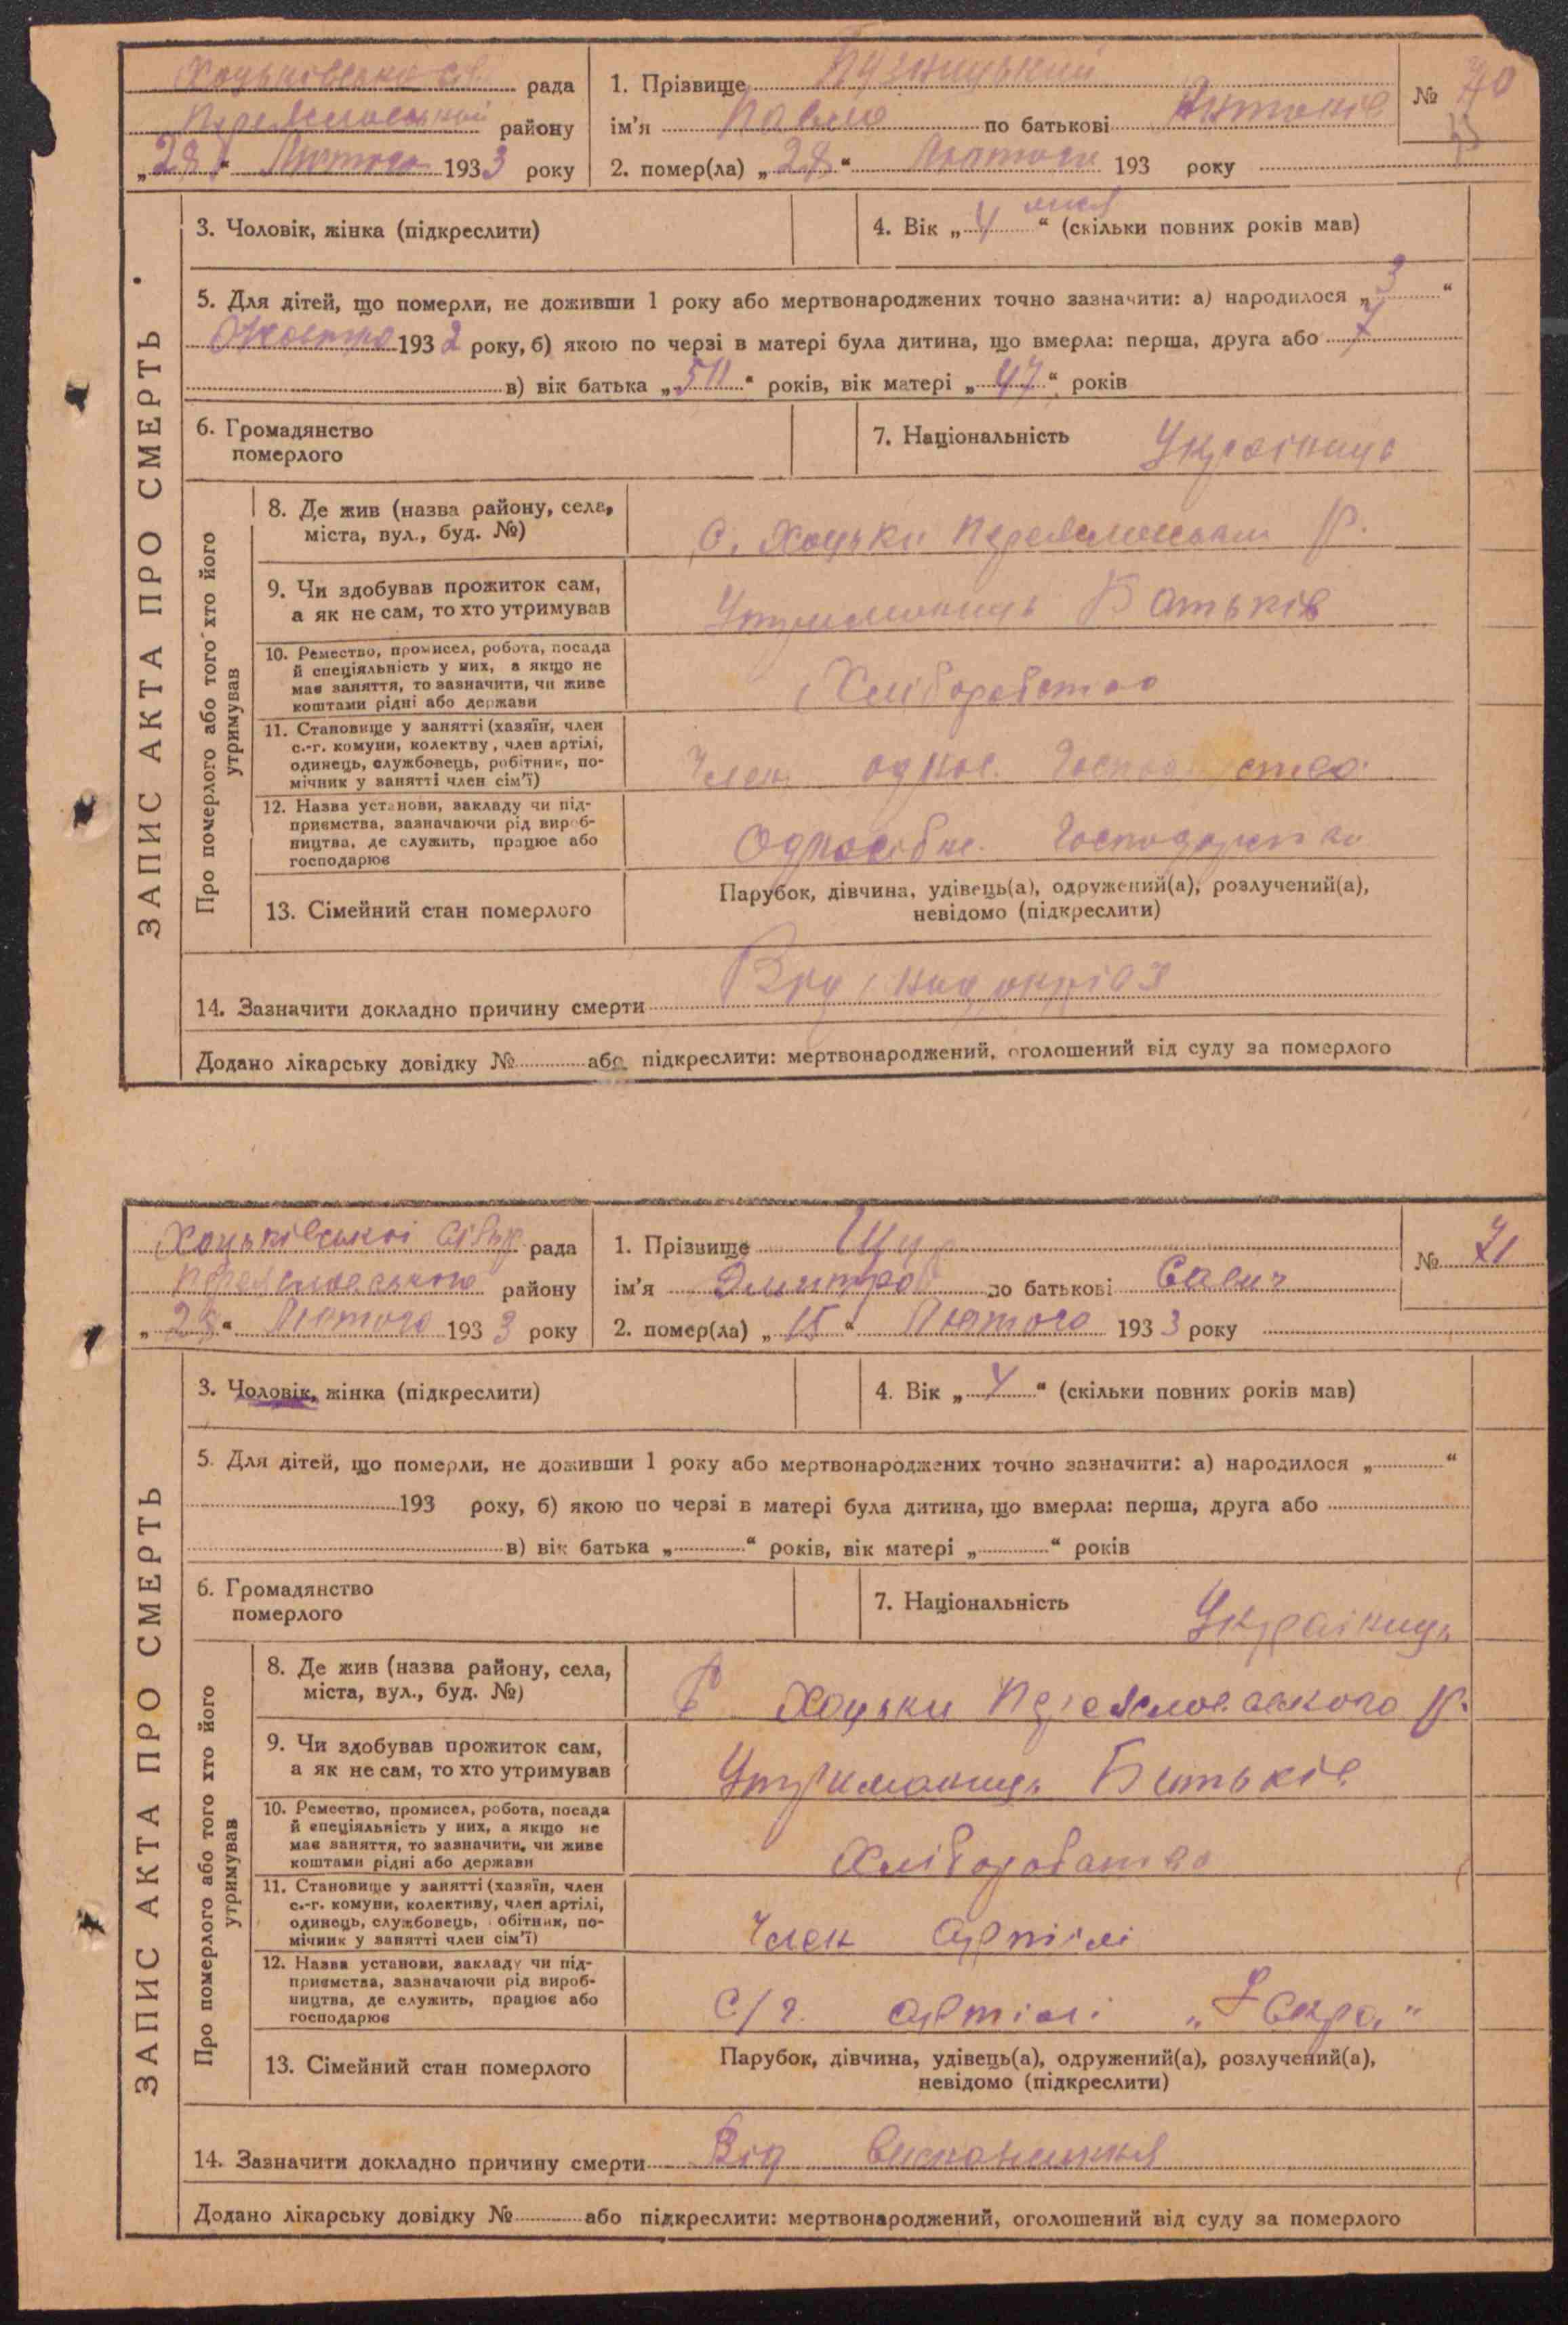 рада
району
„28“ Лютого 1933 року
1. Прізвище
ім’я Павло по батькові Антонів
2. помер(ла) „28“ Лютого 193 року
№ 70
ЗАПИС АКТА ПРО СМЕРТЬ
3. Чоловік, жінка (підкреслити)
4. Вік „4“ (скільки повних років мав)
5. Для дітей, що померли, не доживши 1 року або мертвонароджених точно зазначити: а) народилося „3“
1932 року, б) якою по черзі в матері була дитина, що вмерла: перша, друга або 7
в) вік батька „“ років, вік матері „47“ років
6. Громадянство
померлого
7. Національність Українець
Про померлого або того хто його
утримував
8. Де жив (назва району, села,
міста, вул., буд. №)
с. Хоцьки р.
9. Чи здобував прожиток сам,
а як не сам, то хто утримував
Утриманець Батьків
10. Ремество, промисел, робота, посада
й спеціяльність у них, а якщо не
має заняття, то зазначити, чи живе
коштами рідні або держави
Хліборобство
11. Становище у занятті (хазяїн, член
с.-г. комуни, колективу, член артілі,
одинець, службовець, робітник, по-
мічник у занятті член сім’ї)
Член однос.
12. Назва установи, закладу чи під-
приємства, зазначаючи рід вироб-
ництва, де служить, працює або
господарює
13. Сімейний стан померлого
Парубок, дівчина, удівець(а), одружений(а), розлучений(а),
невідомо (підкреслити)
14. Зазначити докладно причину смерти
Додано лікарську довідку № або підкреслити: мертвонароджений, оголошений від суду за померлого
Хоцьківської сільр рада
Переяславського району
„28“ Лютого 1933 року
1. Прізвище Щур
ім’я Дмитро по батькові Савич
2. помер(ла) „15“ Лютого 1933 року
№ 71
ЗАПИС АКТА ПРО СМЕРТЬ
3. Чоловік, жінка (підкреслити)
4. Вік „4“ (скільки повних років мав)
5. Для дітей, що померли, не доживши 1 року або мертвонароджених точно зазначити: а) народилося „“
193 року, б) якою по черзі в матері була дитина, що вмерла: перша, друга або
в) вік батька „“ років, вік матері „“ років
6. Громадянство
померлого
7. Національність Українець
Про померлого або того хто його
утримував
8. Де жив (назва району, села,
міста, вул., буд. №)
с Хоцьки Переяславського р.
9. Чи здобував прожиток сам,
а як не сам, то хто утримував
Утриманець Батьків
10. Ремество, промисел, робота, посада
й спеціяльність у них, а якщо не
має заняття, то зазначити, чи живе
коштами рідні або держави
Хліборобство
11. Становище у занятті (хазяїн, член
с.-г. комуни, колективу, член артілі,
одинець, службовець, робітник, по-
мічник у занятті член сім’ї)
Член артілі
12. Назва установи, закладу чи під-
приємства, зазначаючи рід вироб-
ництва, де служить, працює або
господарює
С/г. артілі „Іскра“
13. Сімейний стан померлого
Парубок, дівчина, удівець(а), одружений(а), розлучений(а),
невідомо (підкреслити)
14. Зазначити докладно причину смерти Від виснаження
Додано лікарську довідку № або підкреслити: мертвонароджений, оголошений від суду за померлого